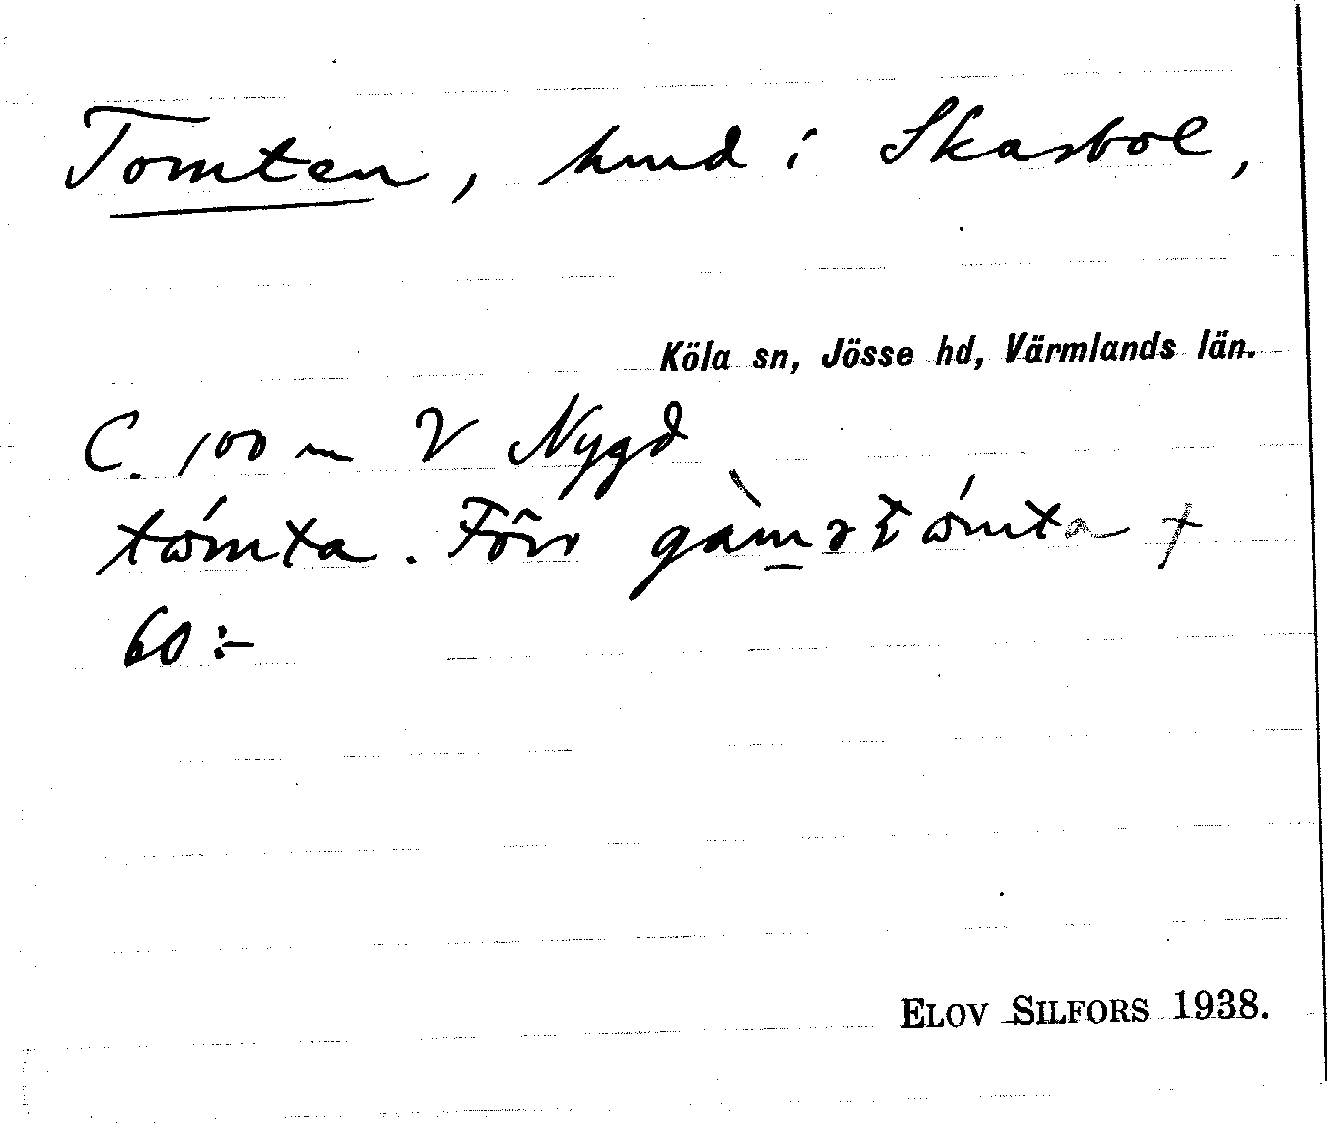 Tomten, hmd i Skasbol,
Köla sn, Jösse hd, Värmlands län.
C. 100 m V Nygd
tómta. Förr gàmaltómta †
60:-
ELOV SILFORS 1938.